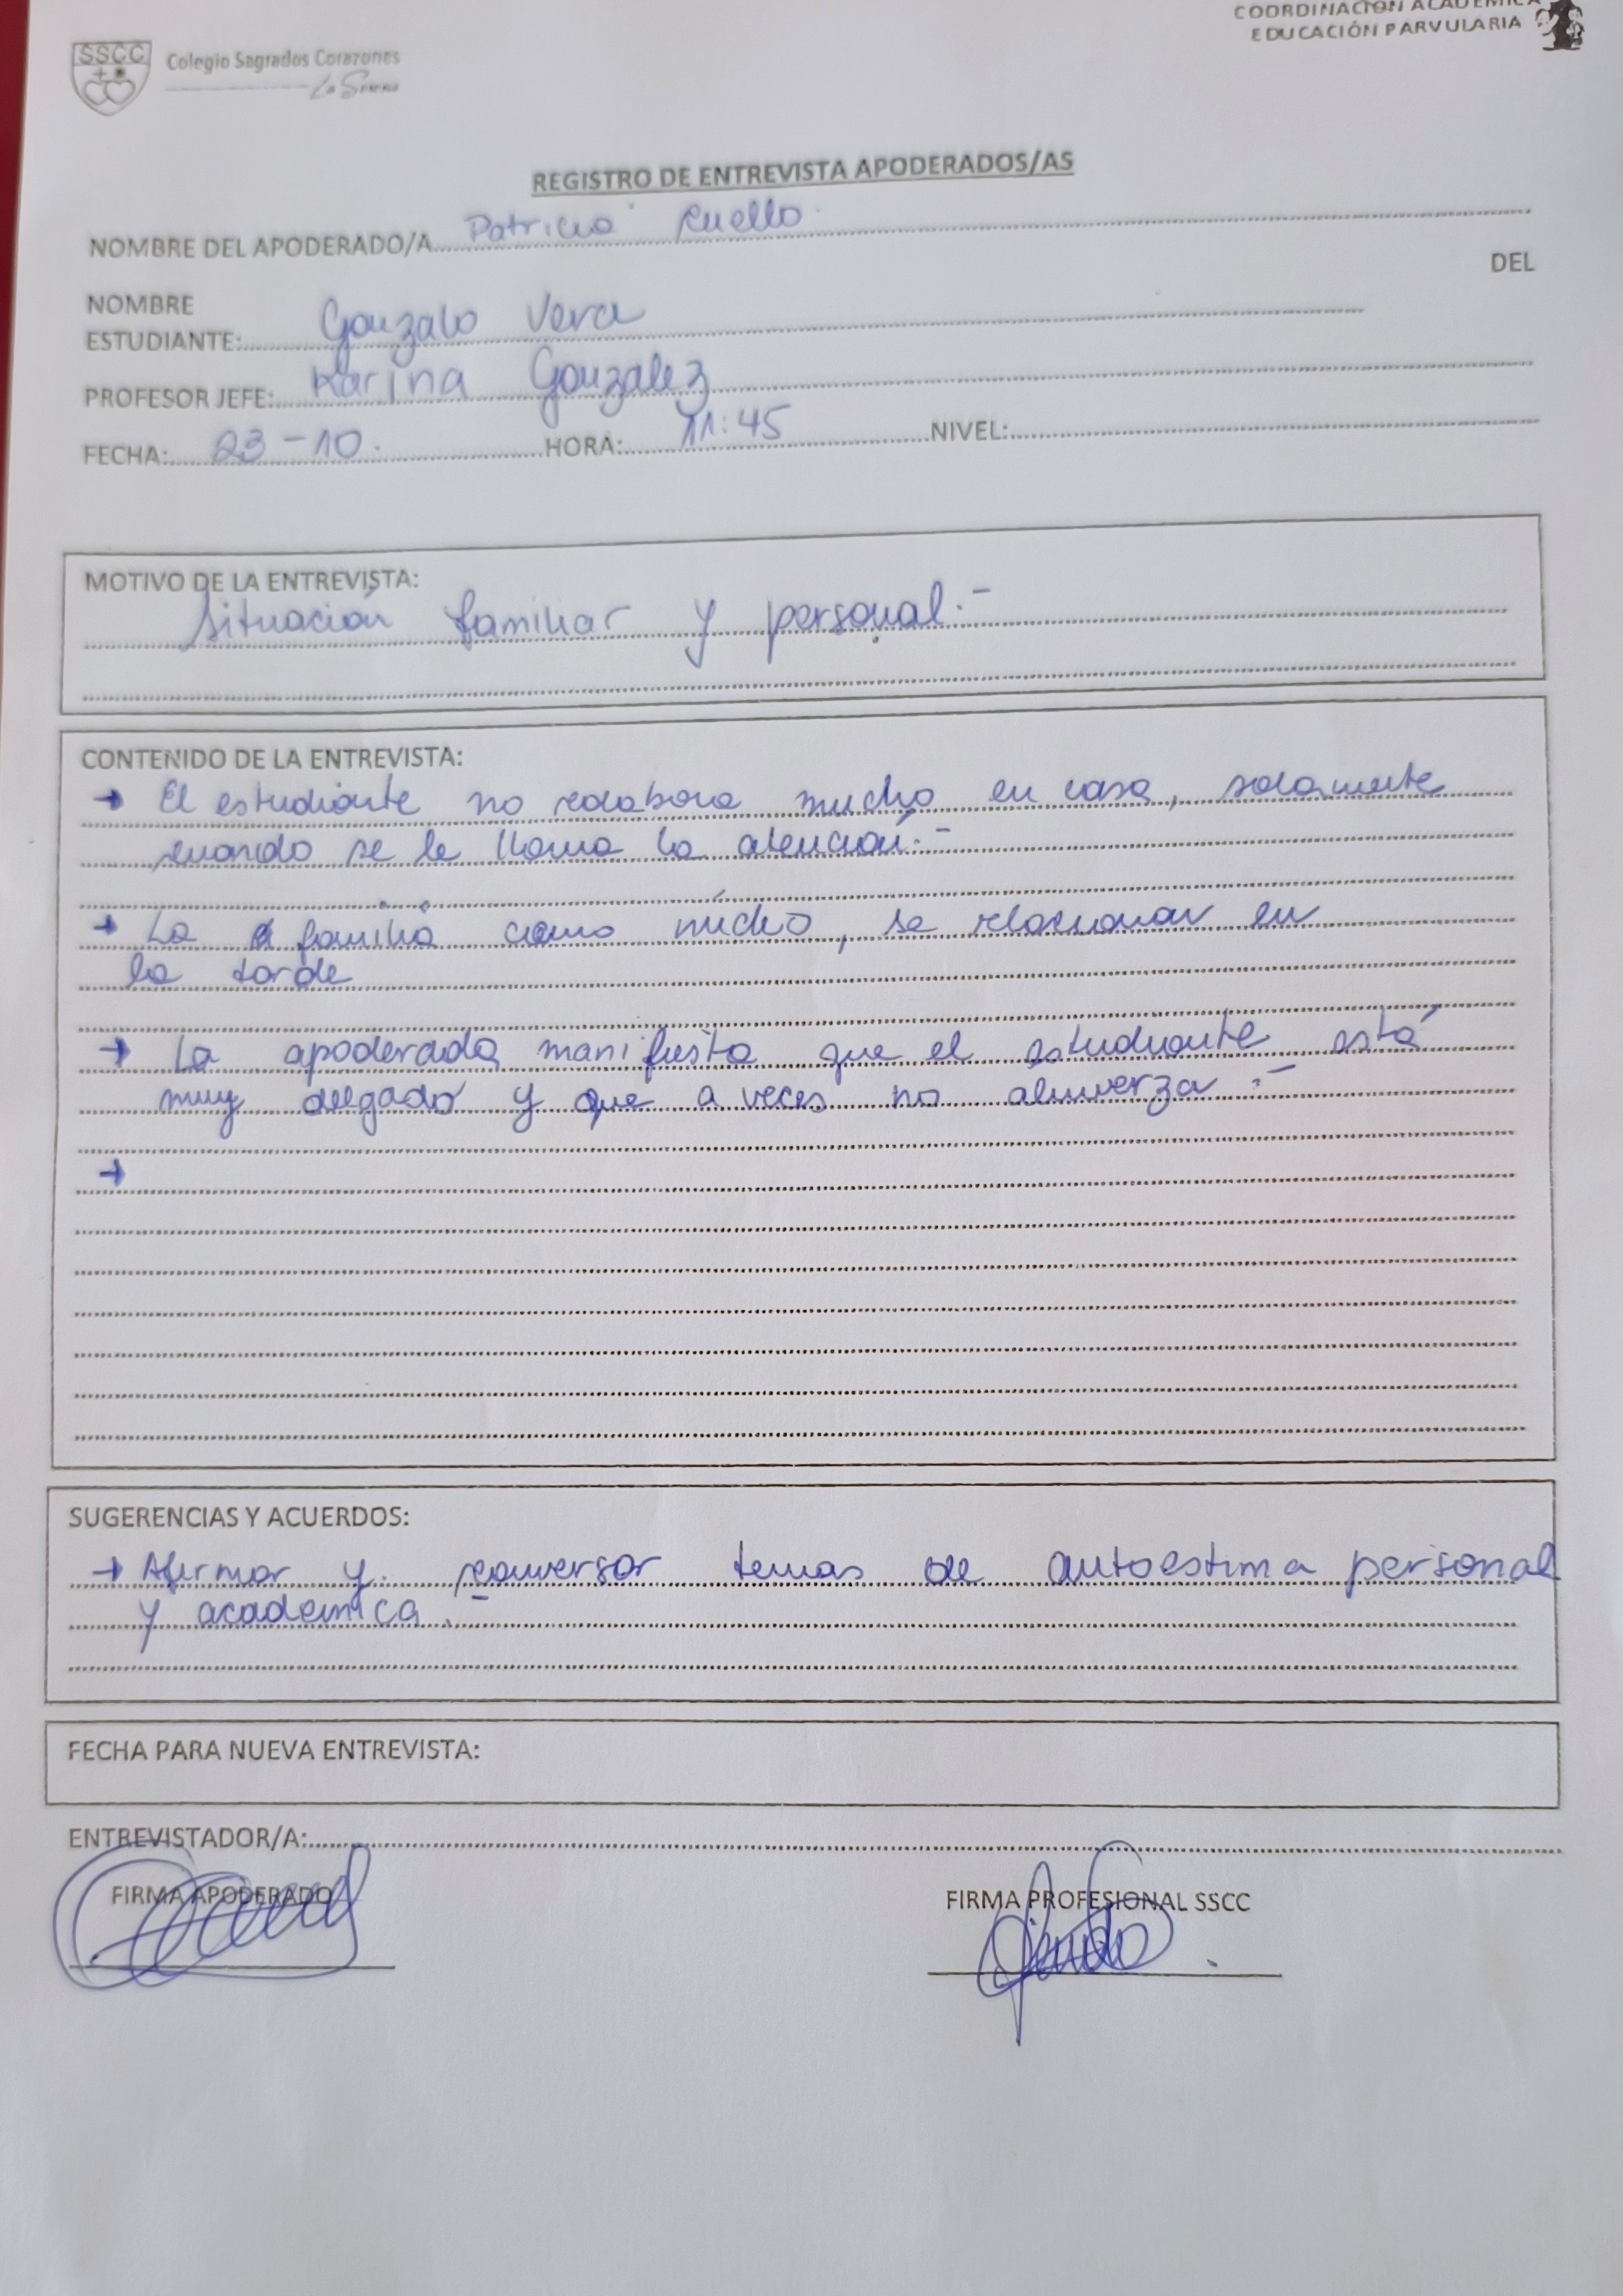 COORDINACIÓN ACADÉMICA
EDUCACIÓN PARVULARIA
SSCC
Colegio Sagrados Corazones
La Serena
REGISTRO DE ENTREVISTA APODERADOS/AS
NOMBRE DEL APODERADO/A Patricia Cuello
DEL
NOMBRE
ESTUDIANTE: Gonzalo Vera
PROFESOR JEFE: Karina Gonzalez
FECHA: 23-10. HORA: 11:45 NIVEL:
MOTIVO DE LA ENTREVISTA:
Situación familiar y personal.-
CONTENIDO DE LA ENTREVISTA:
→ El estudiante no colabora mucho en casa, solamente
cuando se le llama la atención.-
→ La familia como , se relacionan en
la tarde
→ La apoderada manifiesta que el estudiante está
muy delgado y que a veces no almuerza.-
→
SUGERENCIAS Y ACUERDOS:
→ Afirmar y conversar temas de autoestima personal
y academica.-
FECHA PARA NUEVA ENTREVISTA:
ENTREVISTADOR/A:
FIRMA APODERADO
FIRMA PROFESIONAL SSCC